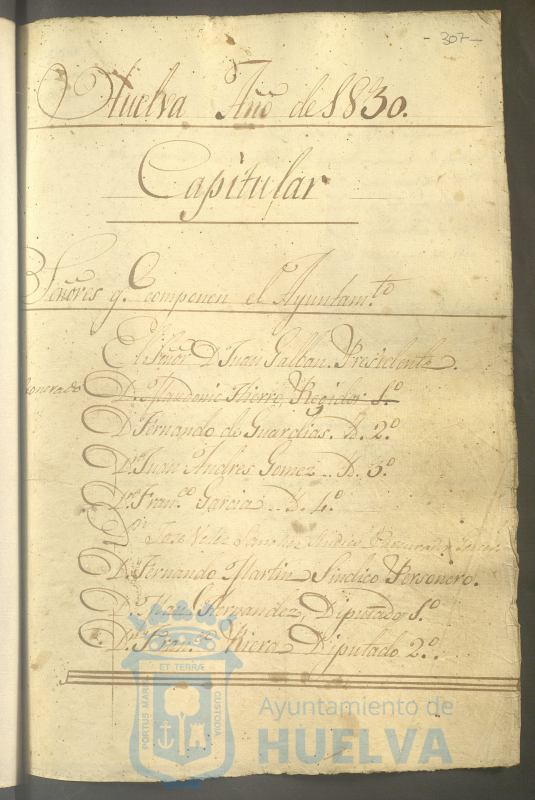 - 307 -
Huelva Año de 1830.
Capitular
Señores q.e componen el Ayuntam.to
El Señor D. Juan Galban. Presidente.
D. Hierro, Regidor 1.º
D. Fernando de Guardias. Yd. 2.º
D.n Juan Andres Gomez.. Yd. 3.º
D.n Fran.co Garcia... Yd. 4.º
Jose Velez Sanchez
D. Fernando Martin Sindico Personero.
D. Hernandez, Diputado 1.º
D.n Fran.co Riera Diputado 2.º.
PORTUS MARIS ET TERRÆ CUSTODIA
Ayuntamiento de
HUELVA